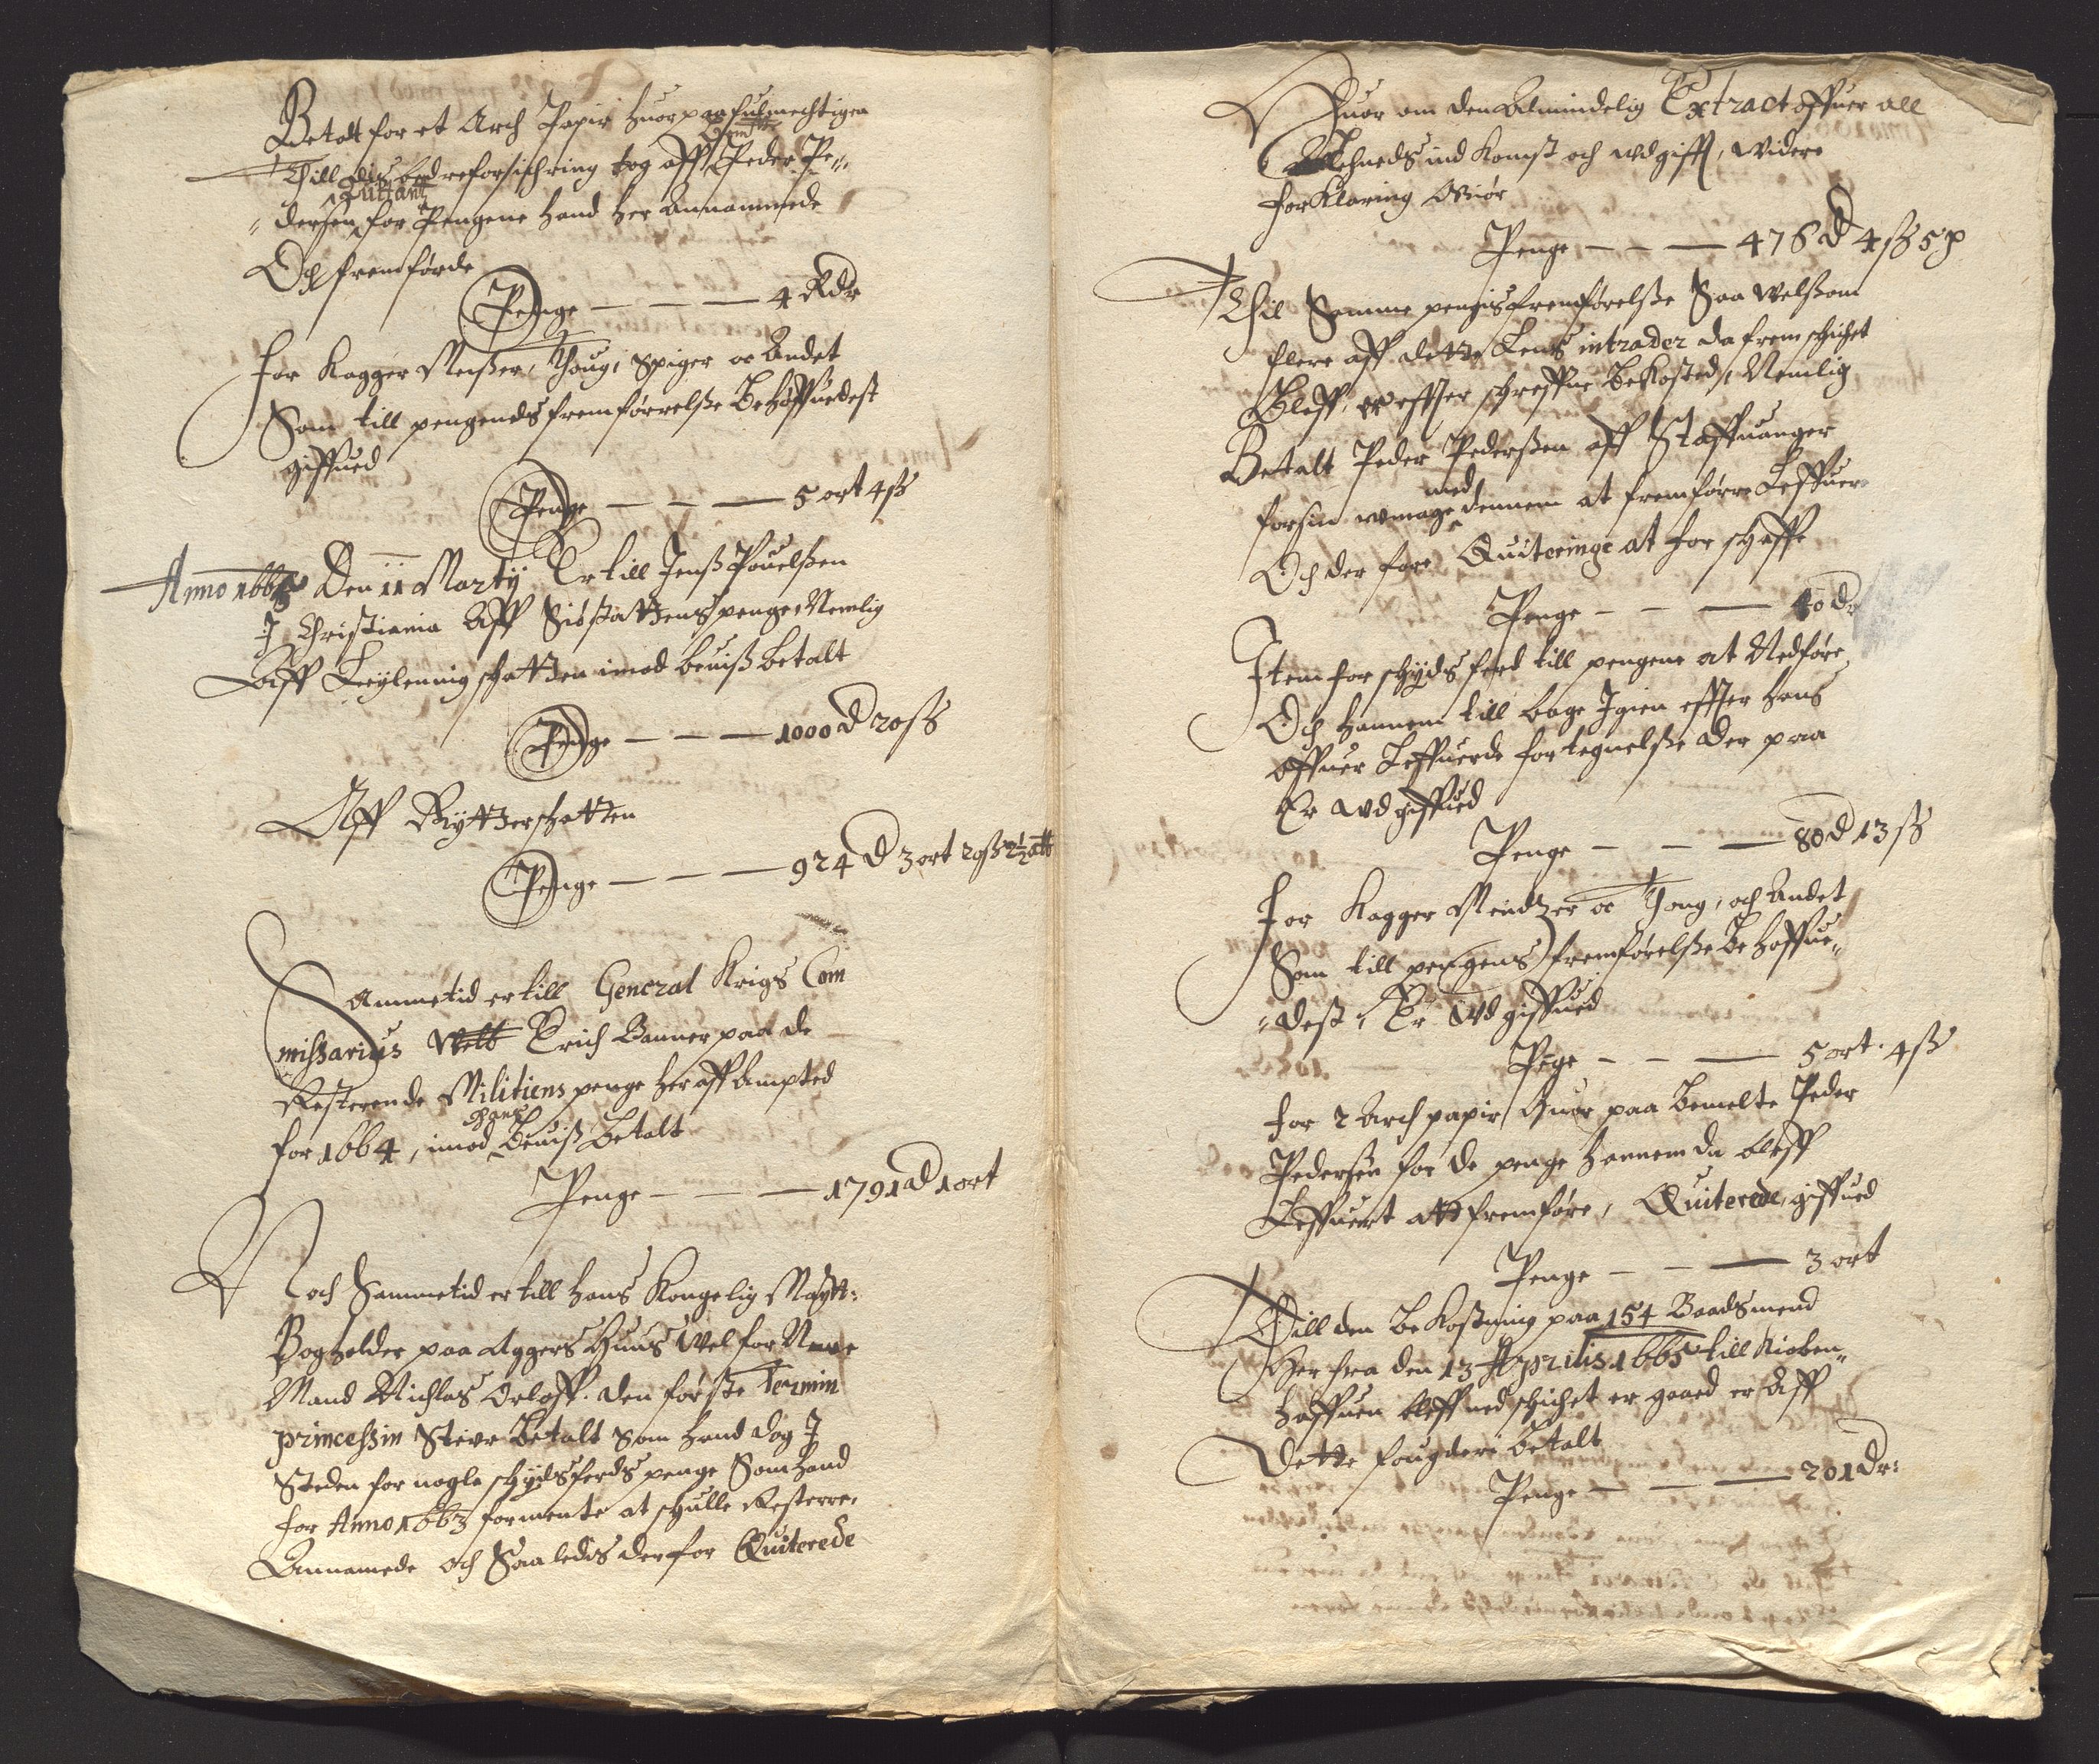 Betalt for et Arch Papir huor paa fulmechtigen
Till dis bedre forsichring tog aff bemte Peder Pe-
dersen Quittantz for Pengene hand her Annammede
Och fremførde
Penge — — — 4 Rdr
For Kagger Meißer, Thoug, Spiger oc Andet
Som till pengends fremførrelße Behøffuedest
giffued
Penge — — — 5 ort 4 ß
Anno 1665 Den 11 Marty Er till Jenß Pouelßen
J Christiania Aff Siößattens penge, Nemlig
Aff Leylennig schatten imod beuiß betalt
Penge — — — 1000 d 20 ß
Aff Rytterschatten
Penge — — — 924 d 3 ort 20 ß 2½ alb
Sammetid er till General Krigs Com
mißarius Welb Erich Banner paa de
Resterende Militiens penge her aff Ampted
for 1664, imod hans Beuiß betalt
Penge — — — 1791 d 1 ort
Noch Sammetid er till hans Kongelig Maytt:
Bogholder paa Aggers Huus Wel for Neme
Mand Nichlas Orloff. den første Termin
princeßin Stiur Betalt som hand dog J
Steden for nogle schydsferds penge Som hand
for Anno 1663 formente at schulle Resterre,
Annamede och Saaledis derfor Quiterede
Huor om den Almindelig Extract offuer all
Lehneds ind Komst och udgifft, widere
forklaring Giör
Penge — — — 476 d 4 ß 5 p
Thil Samme pengis fremførelße Saa welßom
flere aff dette Lens intrader da fremschichet
Bleff, er effter schreffne bekosted, Nemlig
Betalt Peder Pederßen aff Staffuanger
for sin umage med dennem at fremførre Leffuere
Och der fore Quiteringe at forschaffe
Penge — — — 40 dr
Item for schyds ferd till pengene at Nedføre
Och hannem till bage Igien effter hans
offuer Leffuerde fortegnelße der paa
Er udgiffued
Penge — — — 80 d 13 ß
For Kagger Meidtzer oc Thong, och Andet
Som till pengens fremførelße Behøffue-
dest, Er Udgiffued
Pege — — — 5 ort. 4 ß
for 2 Arch papir Huor paa bemelte Peder
Pedersen for de penge hannem da bleff
Leffuert att fremføre, Quiterede, giffued
Penge — — — 3 ort
Till den bekostning paa 154 Baadsmend
Her fra den 13 Aprilis 1665 till Kioben-
haffuen bleff nedschichet er gaaed er Aff
Dette fougderi betalt
Penge — — — 201 dr: